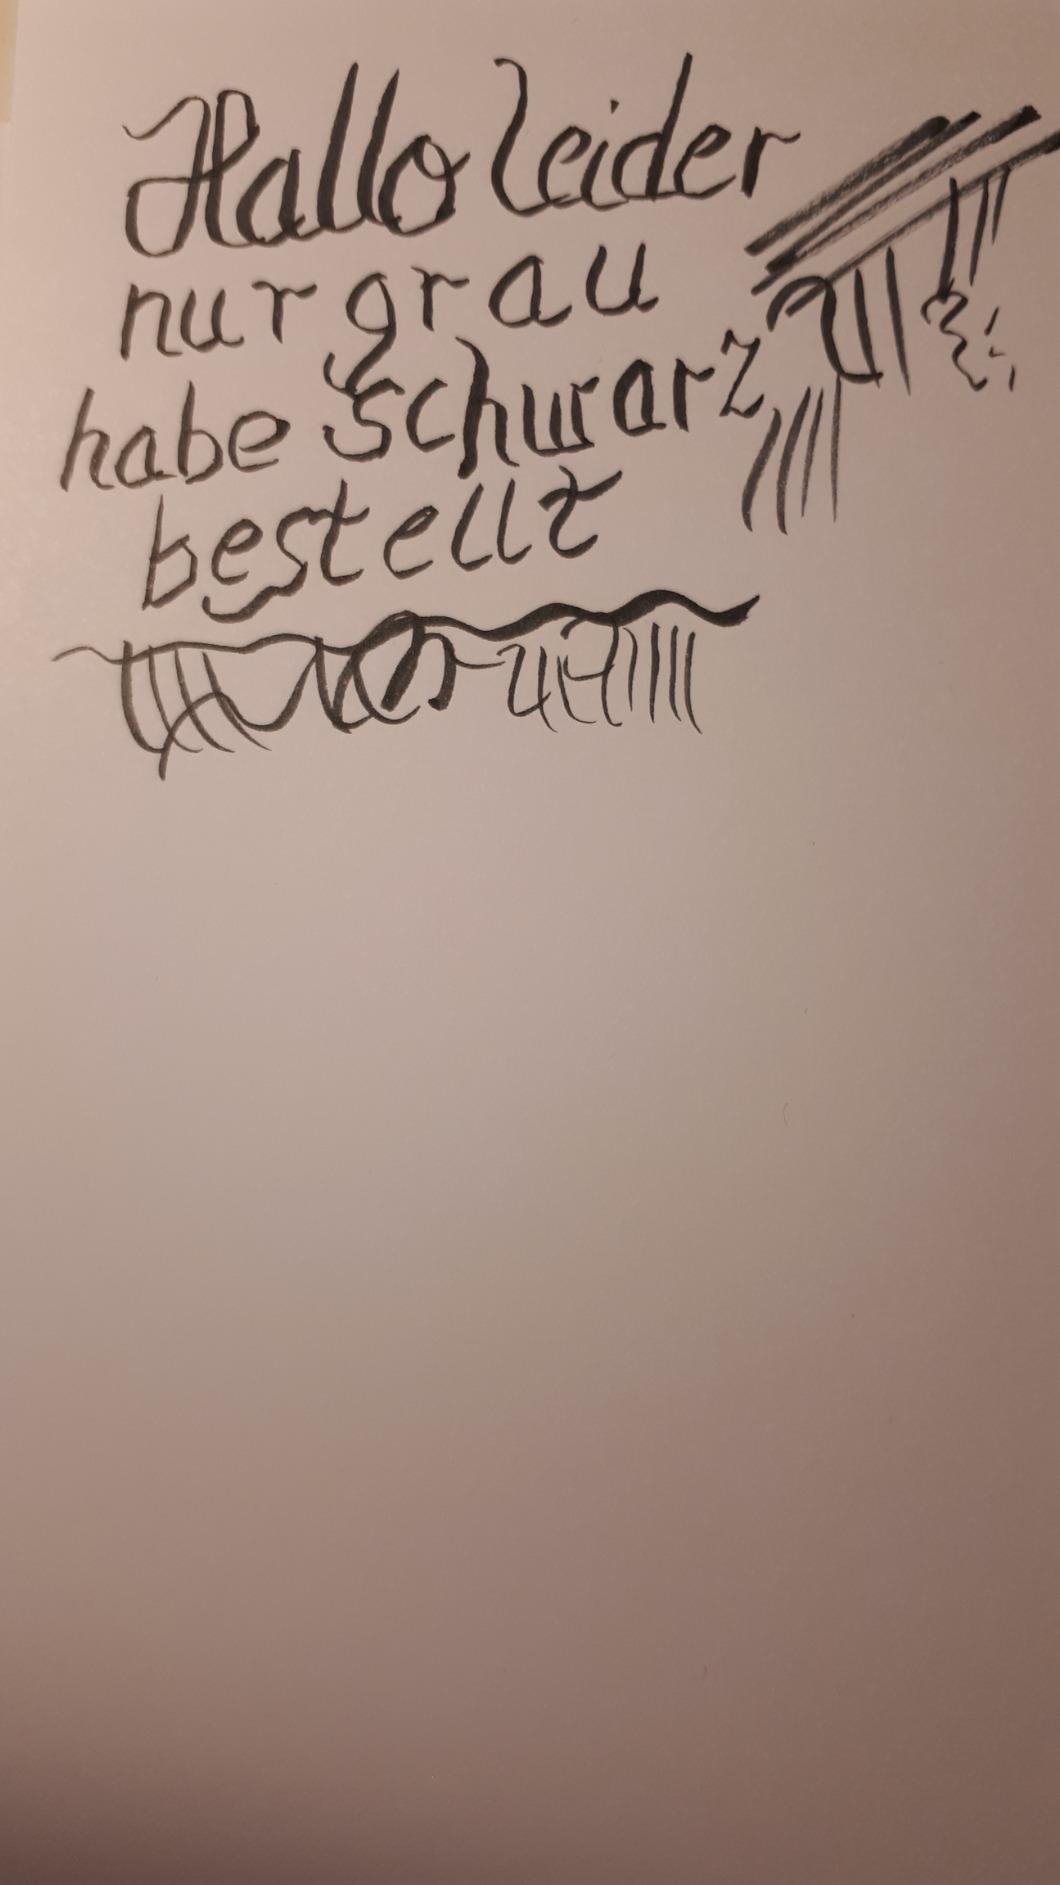 Hallo leider
nur grau
habe schwarz
bestellt